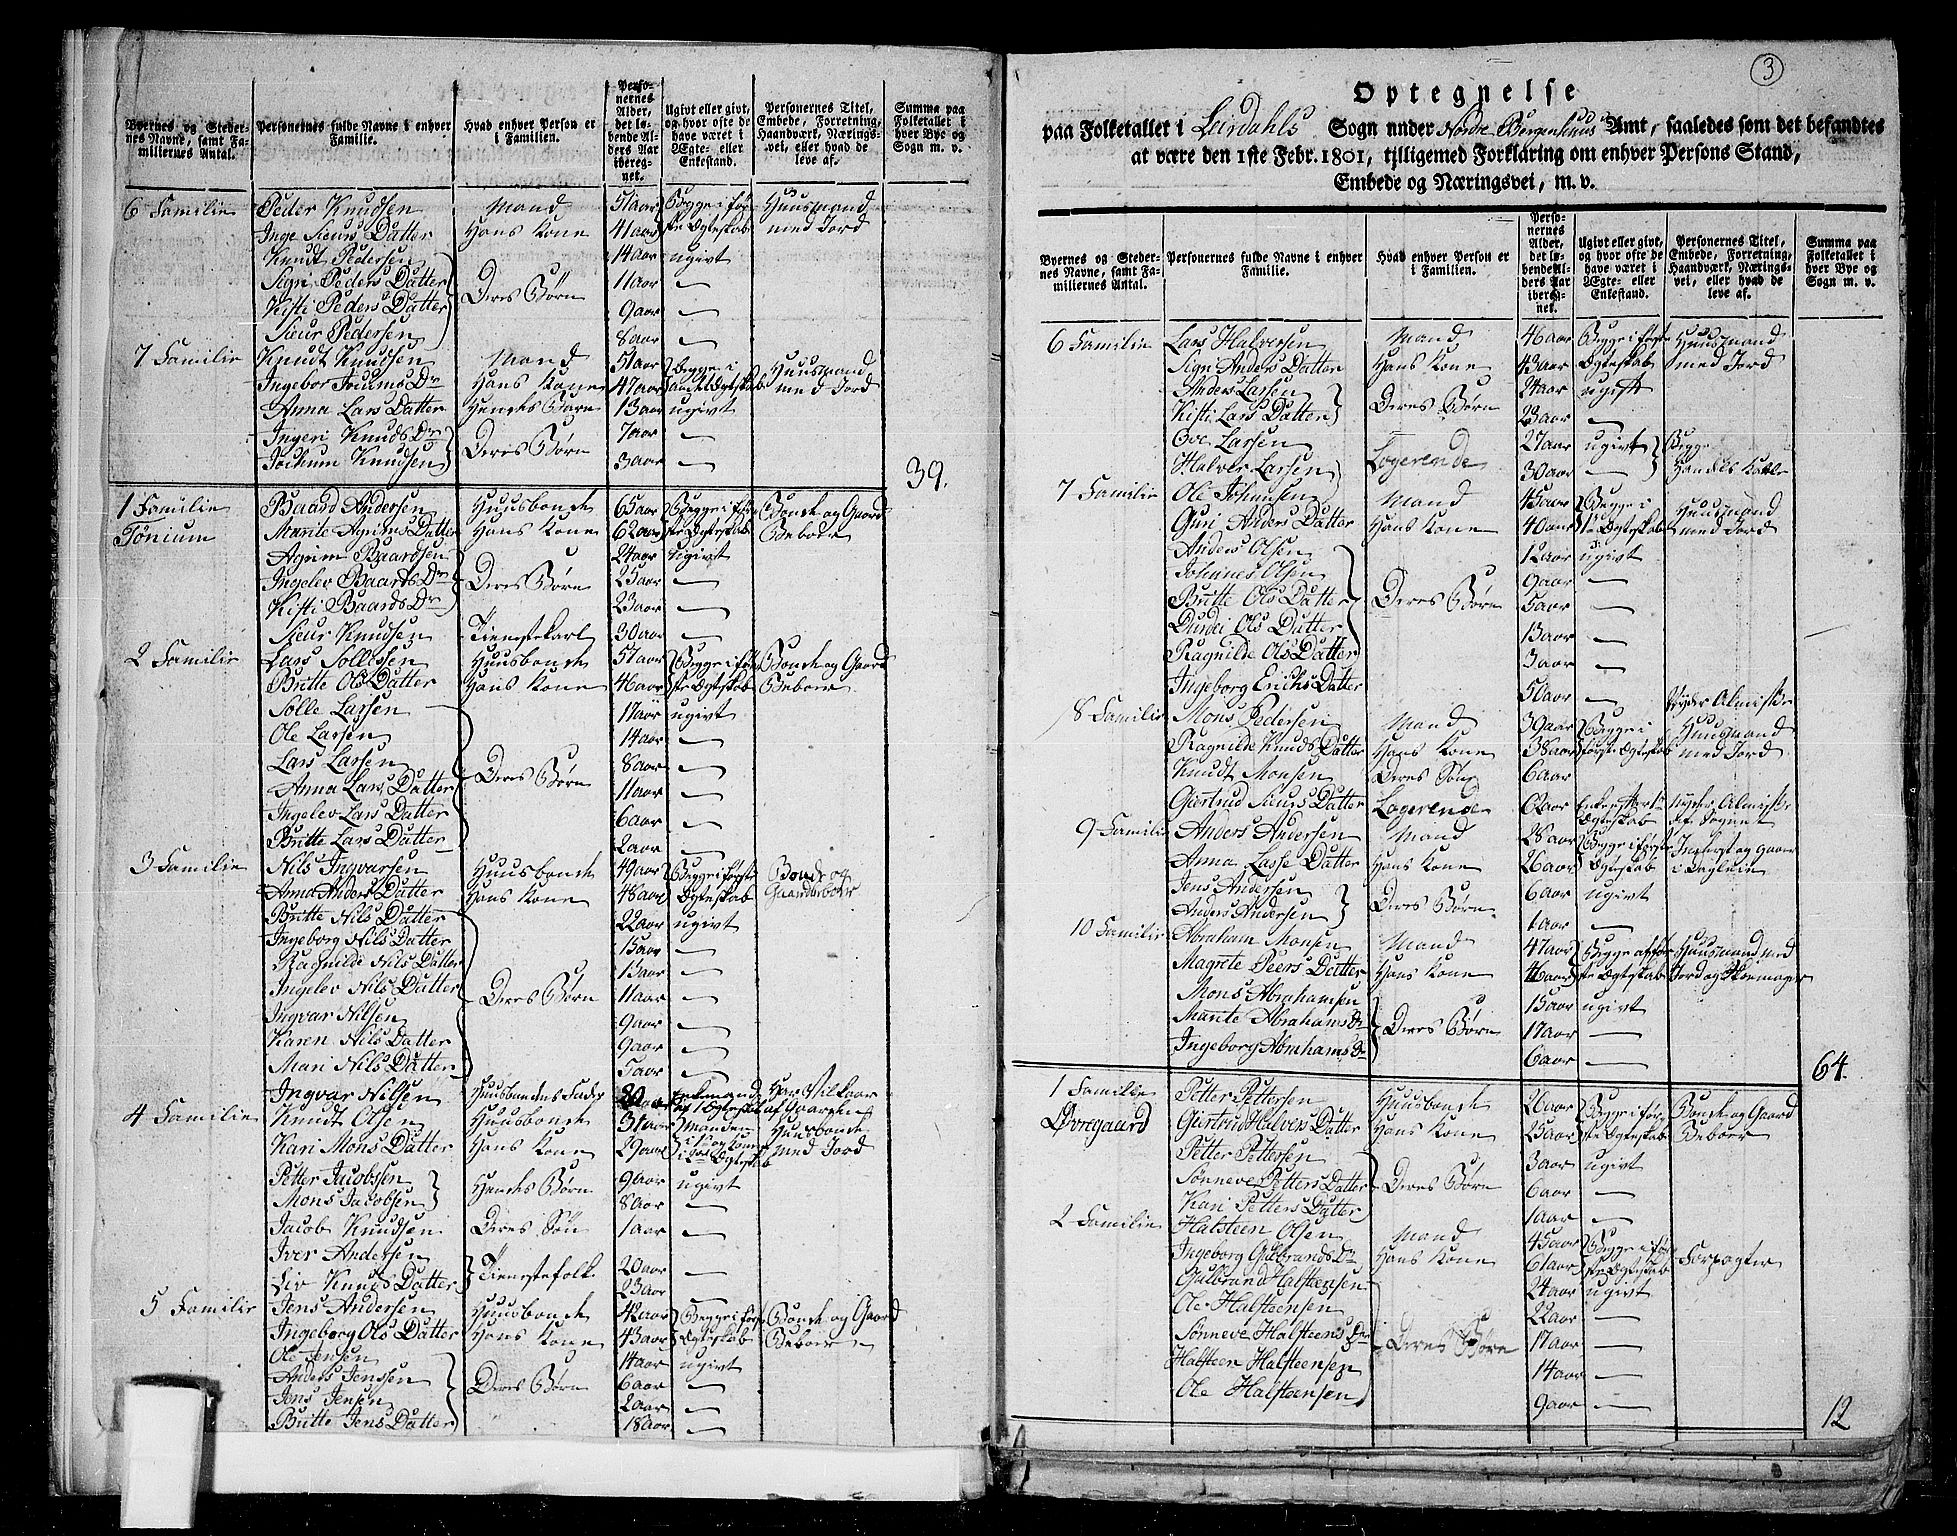 Byernes og Stedernes Navne, samt Familiernes Antal.
Personernes fulde Navne i enhver Familie.
Hvad enhver Person er i Familien.
Personernes Alder, det løbende Alders Aar iberegnet.
Ugivt eller givt, og hvor ofte de have været i Ægte- eller Enkestand.
Personernes Titel, Embede, Forretning, Haandværk, Næringsvei, eller hvad de leve af.
Summa paa Folketallet i hver Bye og Sogn m. v.
6 Familie Peder Knudsen Mand 51 aar Begge i før- Huusmand
Inge Sieurs Datter Hans Kone 41 aar ste Ægteskab med Jord
Knudt Pedersen 14 aar ugivt
Sigri Peders Datter Deres Børn 11 aar —
Kisti Peders Datter 9 aar —
Sieur Pedersen 8 aar —
7 Familie Knudt Knudsen Mand 51 aar Begge i Huusmand
Ingebor Joums Dr Hans Kone 41 aar Ægteskab med Jord
Anna Lars Datter Hendes Barn 13 aar ugivt
Ingeri Knuds Dr Deres Børn 7 aar —
Jochum Knudsen 3 aar —
39.
1 Familie Baard Andersen Huusbonde 65 aar Begge i før- Bonde og Gaard
Tønium Marite Agrims Datter Hans Kone 62 aar ste Ægteskab Beboer
Agrim Baardsen 24 aar ugivt
Ingelev Baards Dr Deres Børn 25 aar —
Kisti Baards Dr 23 aar —
Sieur Knudsen Tienestekarl 30 aar —
2 Familie Lars Sollesen Huusbonde 51 aar Begge i før- Bonde og Gaard
Britte Ols Datter Hans Kone 46 aar ste Ægteskab Beboer
Solle Larsen 17 aar ugivt
Ole Larsen 14 aar —
Lars Larsen 8 aar —
Anna Lars Datter Deres Børn 11 aar —
Ingelev Lars Datter 6 aar —
Britte Lars Datter 2 aar —
3 Familie Nils Ingvarsen Huusbonde 49 aar Begge i første Bonde og
Anna Anders Datter Hans Kone 48 aar Ægteskab Gaardbeboer
Britte Nils Datter 22 aar ugivt
Ingeborg Nils Datter 15 aar —
Ragnilde Nils Datter 13 aar —
Ingelev Nils Datter Deres Børn 11 aar —
Ingvar Nilsen 9 aar —
Karen Nils Datter 9 aar —
Mari Nils Datter 5 aar —
Ingvar Nilsen Huusbondens Fader 80 aar Enkemand Har Vilkaar
4 Familie Knudt Olsen Huusbonde 31 aar Manden af Gaarden Huusbonde
Kari Mons Datter Hans Kone 29 aar Ægteskab med Jord
Petter Jacobsen Hendes Børn 9 aar ugivt
Mons Jacobsen 8 aar —
Jacob Knudsen Deres Søn 1 aar —
Iver Andersen Tienestefolk 20 aar —
Liv Knuds Datter 23 aar —
5 Familie Jens Andersen Huusbonde 42 aar Begge i første Bonde og Gaard
Ingeborg Ols Datter Hans Kone 43 aar Ægteskab Beboer
Ole Jensen 14 aar ugivt
Anders Jenssen Deres Børn 6 aar —
Jens Jensen 2 aar —
Britte Jens Datter 18 aar —
3
Optegnelse
paa Folketallet i Leirdahls Sogn under Nordre Bergenhuus Amt, saaledes som det befandtes
at være den 1ste Febr. 1801, tilligemed Forklaring om enhver Persons Stand,
Embede og Næringsvei, m. v.
Byernes og Stedernes Navne, samt Familiernes Antal.
Personernes fulde Navne i enhver Familie.
Hvad enhver Person er i Familien.
Personernes Alder, det løbende Alders Aar iberegnet.
Ugivt eller givt, og hvor ofte de have været i Ægte- eller Enkestand.
Personernes Titel, Embede, Forretning, Haandværk, Næringsvei, eller hvad de leve af.
Summa paa Folketallet i hver Bye og Sogn m. v.
6 Familie Lars Halversen Mand 46 aar Begge i første Huusmand
Sigri Anders Datter Hans Kone 43 aar Ægteskab med Jord
Anders Larsen 24 aar ugift
Kisti Lars Datter Deres Børn 23 aar —
Ove Larsen Logerende 27 aar ugivt Begge
Halver Larsen 30 aar —
7 Familie Ole Johansen Mand 45 aar Begge i Huusmand
Guri Anders Datter Hans Kone 40 aar 1te Ægteskab med Jord
Anders Olsen 12 aar ugivt
Johannes Olsen 9 aar —
Britte Ols Datter Deres Børn 5 aar —
Durdei Ols Datter 13 aar —
Ragnilde Ols Datter 3 aar —
Ingeborg Erichs Datter 50 aar — Nyder Almisse
8 Familie Mons Pedersen Mand 39 aar Begge i Huusmand
Ragnilde Knuds Datter Hans Kone 38 aar første Ægteskab med Jord
Knudt Monsen Deres Søn 6 aar
Giertrud Sieurs Datter Logerende 62 aar Enke Ægteskab Nyder Almisse af Sognet
9 Familie Anders Andersen Mand 28 aar Begge i første
Anna Lasse Datter Hans Kone 26 aar Ægteskab
Jens Andersen Deres Børn 6 aar ugivt
Anders Andersen 1 aar —
10 Familie Abraham Monsen Mand 47 aar Begge i før- Huusmand med
Magrete Peers Datter Hans Kone 46 aar ste Ægteskab Jord og Skomager
Mons Abrahamsen 15 aar ugivt
Marite Abrahams Dr Deres Børn 17 aar —
Ingeborg Abrahams Dr 6 aar —
64.
1 Familie Petter Pettersen Huusbonde 26 aar Begge i før- Bonde og Gaard
Øvregaard Giertrud Halvers Datter Hans Kone 25 aar ste Ægteskab Beboer
Petter Pettersen 3 aar ugivt
Sonneve Petters Datter Deres Børn 6 aar —
Kari Petters Datter 1 aar —
2 Familie Halsteen Olsen Mand 45 aar Begge i før- Forpagter
Ingeborg Gulbrands Dr Hans Kone 61 aar ste Ægteskab
Gulbrand Halsteensen 24 aar ugivt
Ole Halsteensen 22 aar —
Sonneve Halsteens Dr Deres Børn 17 aar —
Halsteen Halsteensen 14 aar —
Ole Halsteensen 9 aar —
12